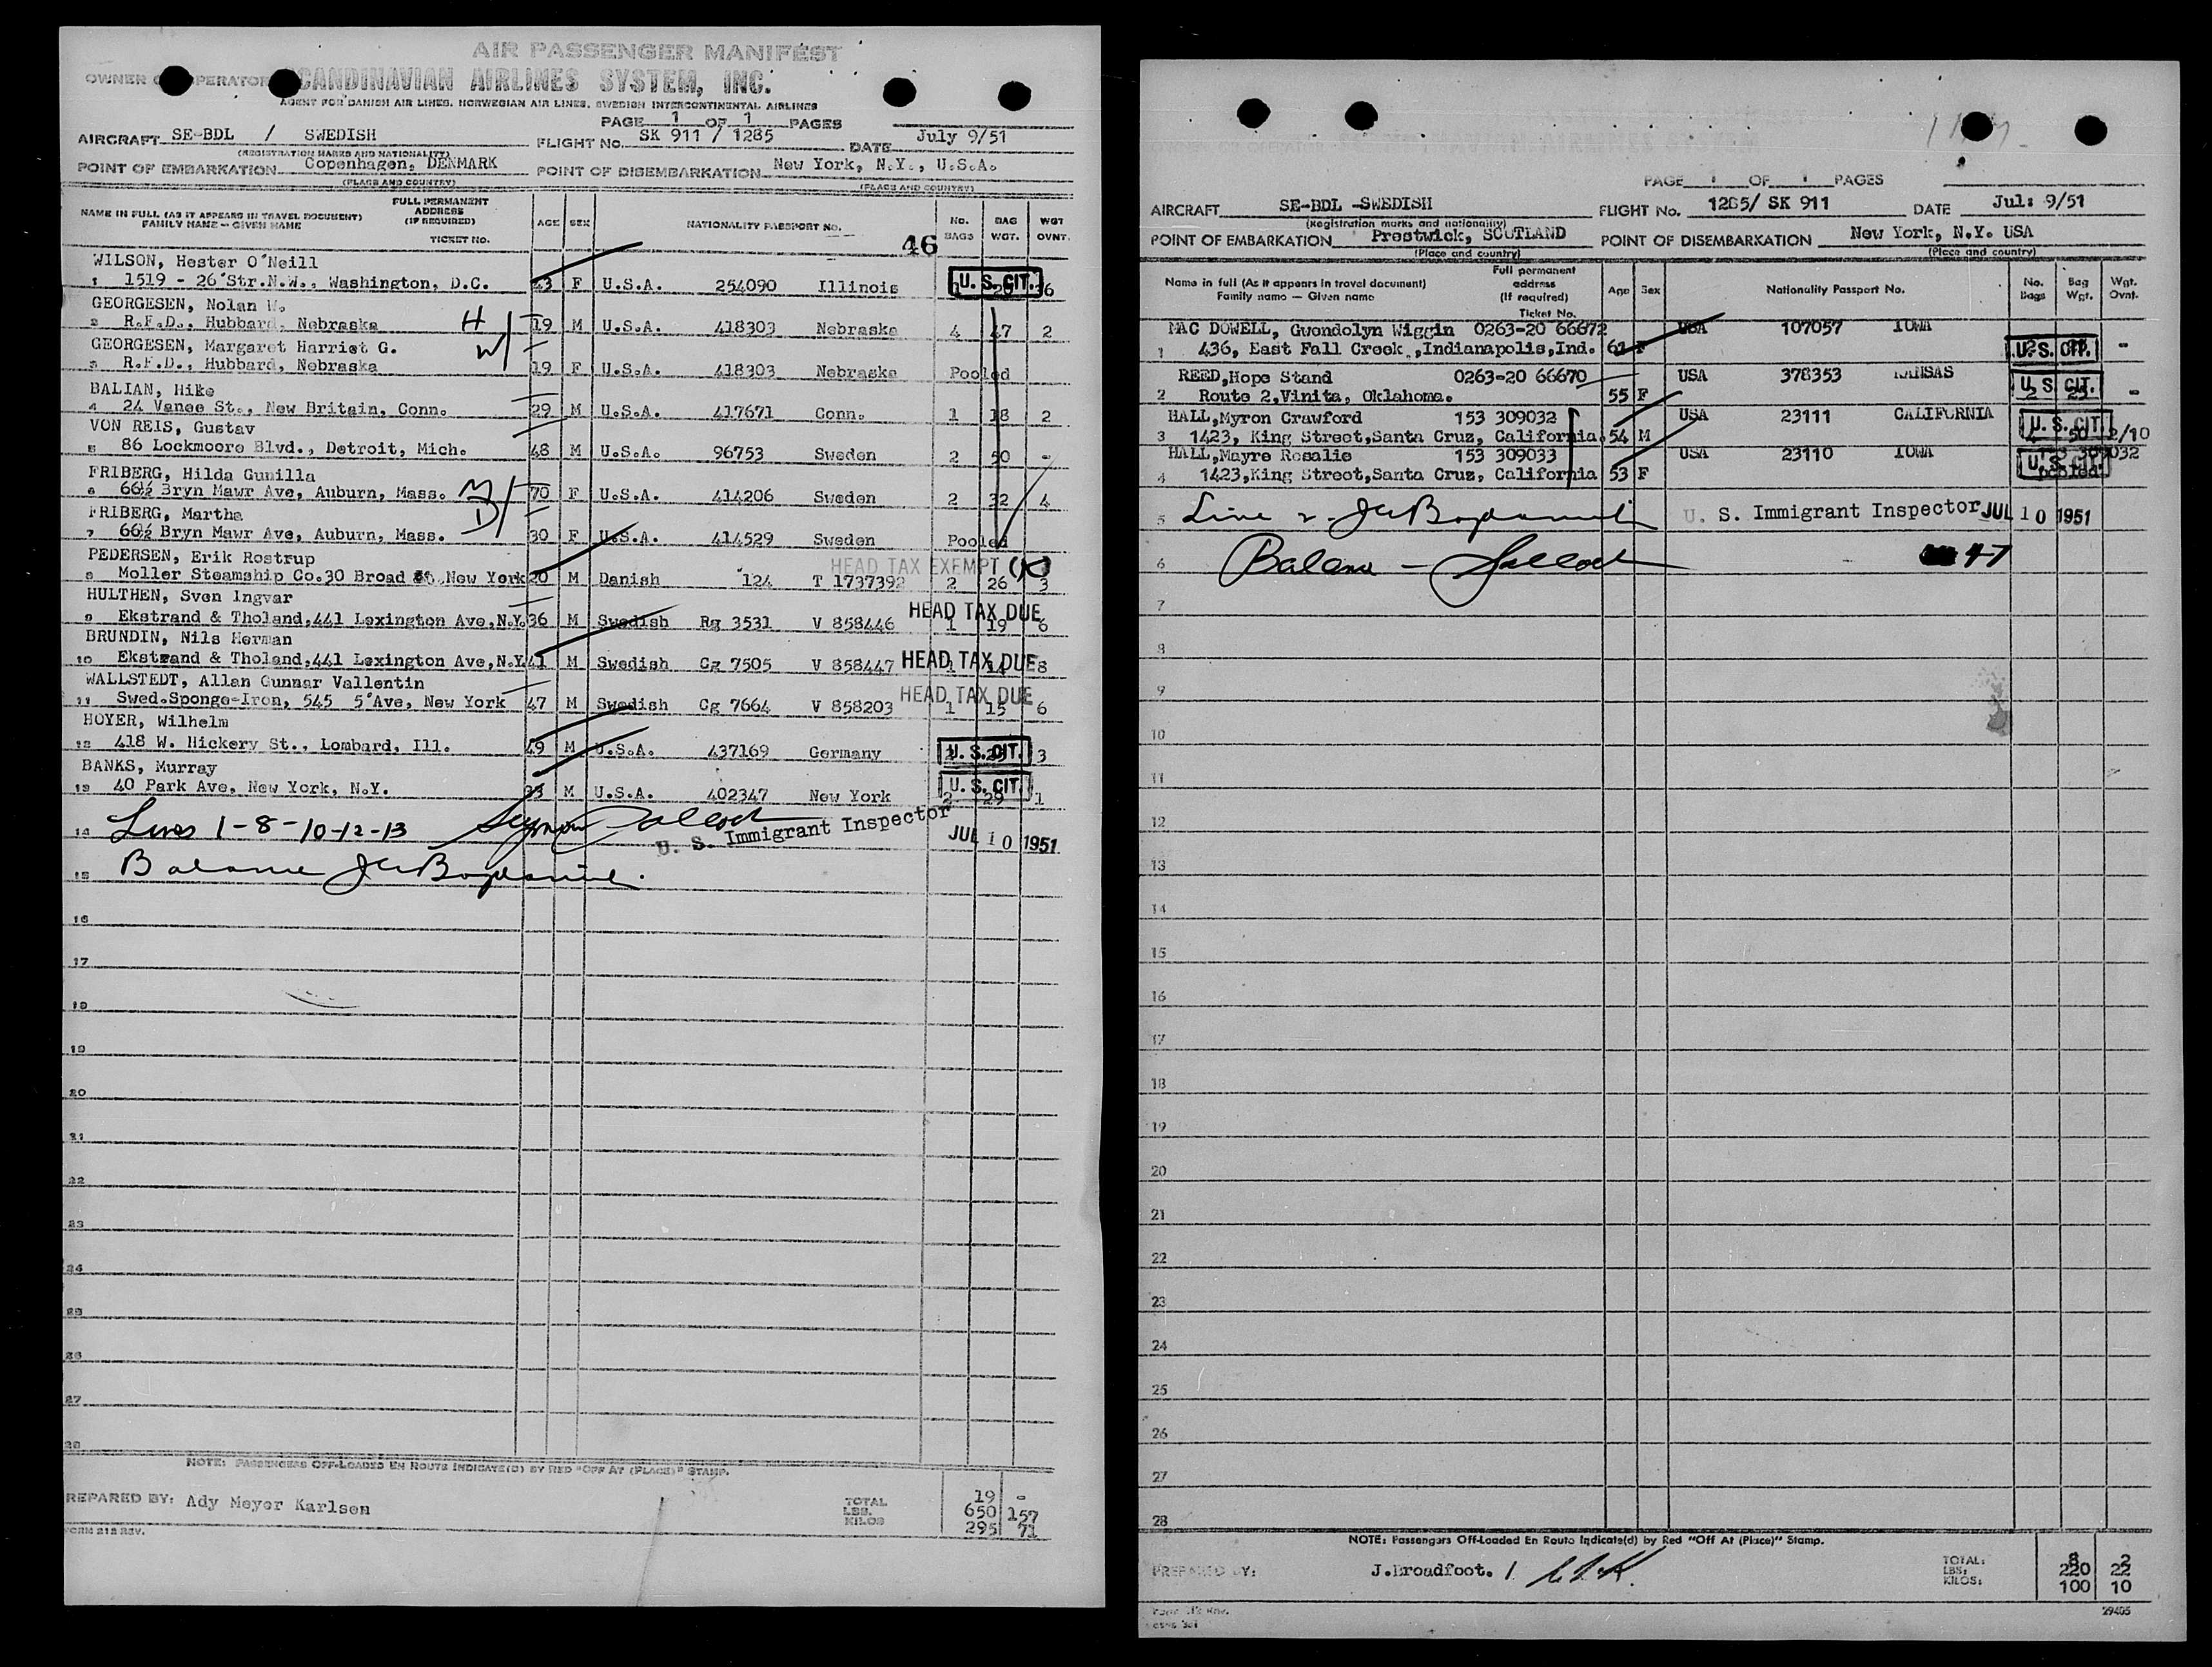 AIR PASSENGER MANIFEST
OWNER OPERATOR SCANDINAVIAN AIRLINES SYSTEM, INC.
AGENT FOR DANISH AIR LINES, NORWEGIAN AIR LINES, SWEDISH INTERCONTINENTAL AIRLINES
PAGE 1 OF 1 PAGES
AIRCRAFT SE-BDL / SWEDISH FLIGHT No. SK 911 / 1285 DATE July 9/51
(REGISTRATION MARKS AND NATIONALITY)
POINT OF EMBARKATION Copenhagen, DENMARK POINT OF DISEMBARKATION New York, N.Y., U.S.A.
(PLACE AND COUNTRY) (PLACE AND COUNTRY)
NAME IN FULL (AS IT APPEARS IN TRAVEL DOCUMENT) FAMILY NAME - GIVEN NAME FULL PERMANENT ADDRESS (IF REQUIRED) TICKET NO. AGE SEX NATIONALITY PASSPORT NO. No. BAGS BAG WGT. WGT OVNT.
46
WILSON, Hester O'Neill
1 1519 - 26'Str.N.W., Washington, D.C. F U.S.A. 254090 Illinois U. S. CIT. 6
GEORGESEN, Nolan W.
2 R.F.D., Hubbard, Nebraska H 19 M U.S.A. 418303 Nebraska 4 47 2
GEORGESEN, Margaret Harriet G.
3 R.F.D., Hubbard, Nebraska W 19 F U.S.A. 418303 Nebraska Pooled
BALIAN, Hike
4 24 Vanee St., New Britain, Conn. 29 M U.S.A. 417671 Conn. 1 18 2
VON REIS, Gustav
5 86 Lockmoore Blvd., Detroit, Mich. 48 M U.S.A. 96753 Sweden 2 50 -
FRIBERG, Hilda Gunilla
6 66½ Bryn Mawr Ave, Auburn, Mass. M 70 F U.S.A. 414206 Sweden 2 32 4
FRIBERG, Martha
7 66½ Bryn Mawr Ave, Auburn, Mass. D 30 F U.S.A. 414529 Sweden Pooled
PEDERSEN, Erik Rostrup HEAD TAX EXEMPT
8 Moller Steamship Co.30 Broad St. New York 20 M Danish 124 T 1737392 2 26 3
HULTHEN, Sven Ingvar HEAD TAX DUE
9 Ekstrand & Tholand,441 Lexington Ave,N.Y. 36 M Swedish Rg 3531 V 858446 1 19 6
BRUNDIN, Nils Herman
10 Ekstrand & Tholand,441 Lexington Ave,N.Y. 41 M Swedish Cg 7505 V 858447 HEAD TAX DUE 8
WALLSTEDT, Allan Gunnar Vallentin HEAD TAX DUE
11 Swed.Sponge-Iron, 545 5'Ave, New York 47 M Swedish Cg 7664 V 858203 1 15 6
HOYER, Wilhelm
12 418 W. Hickery St., Lombard, Ill. 49 M U.S.A. 437169 Germany U. S. CIT. 3
BANKS, Murray U. S. CIT.
13 40 Park Ave, New York, N.Y. M U.S.A. 402347 New York 2 29 1
14 Lines 1-8-10-12-13 U. S. Immigrant Inspector JUL 10 1951
15 Balance
16
17
18
19
20
21
22
23
24
25
26
27
28
NOTE: PASSENGERS OFF-LOADED EN ROUTE INDICATE(D) BY RED "OFF AT (PLACE)" STAMP.
PREPARED BY: Ady Meyer Karlsen
TOTAL 19 -
LBS. 650 157
KILOS 295 71
FORM 212 REV.
PAGE 1 OF 1 PAGES
AIRCRAFT SE-BDL -SWEDISH FLIGHT No. 1285/ SK 911 DATE Jul: 9/51
(Registration marks and nationality)
POINT OF EMBARKATION Prestwick, SCOTLAND POINT OF DISEMBARKATION New York, N.Y. USA
(Place and country) (Place and country)
Name in full (As it appears in travel document) Family name — Given name Full permanent address (If required) Ticket No. Age Sex Nationality Passport No. No. Bags Bag Wgt. Wgt. Ovnt.
MAC DOWELL, Gwendolyn Wiggin 0263-20 66672 USA 107057 IOWA
1 436, East Fall Creek.,Indianapolis,Ind. 61 F U. S. CIT. -
REED,Hope Stand 0263-20 66670 USA 378353 KANSAS
2 Route 2,Vinita, Oklahoma. 55 F U. S. CIT. -
HALL,Myron Crawford 153 309032 USA 23111 CALIFORNIA
3 1423, King Street,Santa Cruz, California. 54 M U. S. CIT. 50 2/10
HALL,Mayre Rosalie 153 309033 USA 23110 IOWA
4 1423,King Street,Santa Cruz, California 53 F U. S. CIT.
5 Line 2 - U. S. Immigrant Inspector JUL 10 1951
6 Balance - 47
7
8
9
10
11
12
13
14
15
16
17
18
19
20
21
22
23
24
25
26
27
28
NOTE: Passengers Off-Loaded En Route Indicate(d) by Red "Off At (Place)" Stamp.
PREPARED BY: J.Broadfoot. /
TOTAL: 8 2
LBS: 220 22
KILOS: 100 10
29405